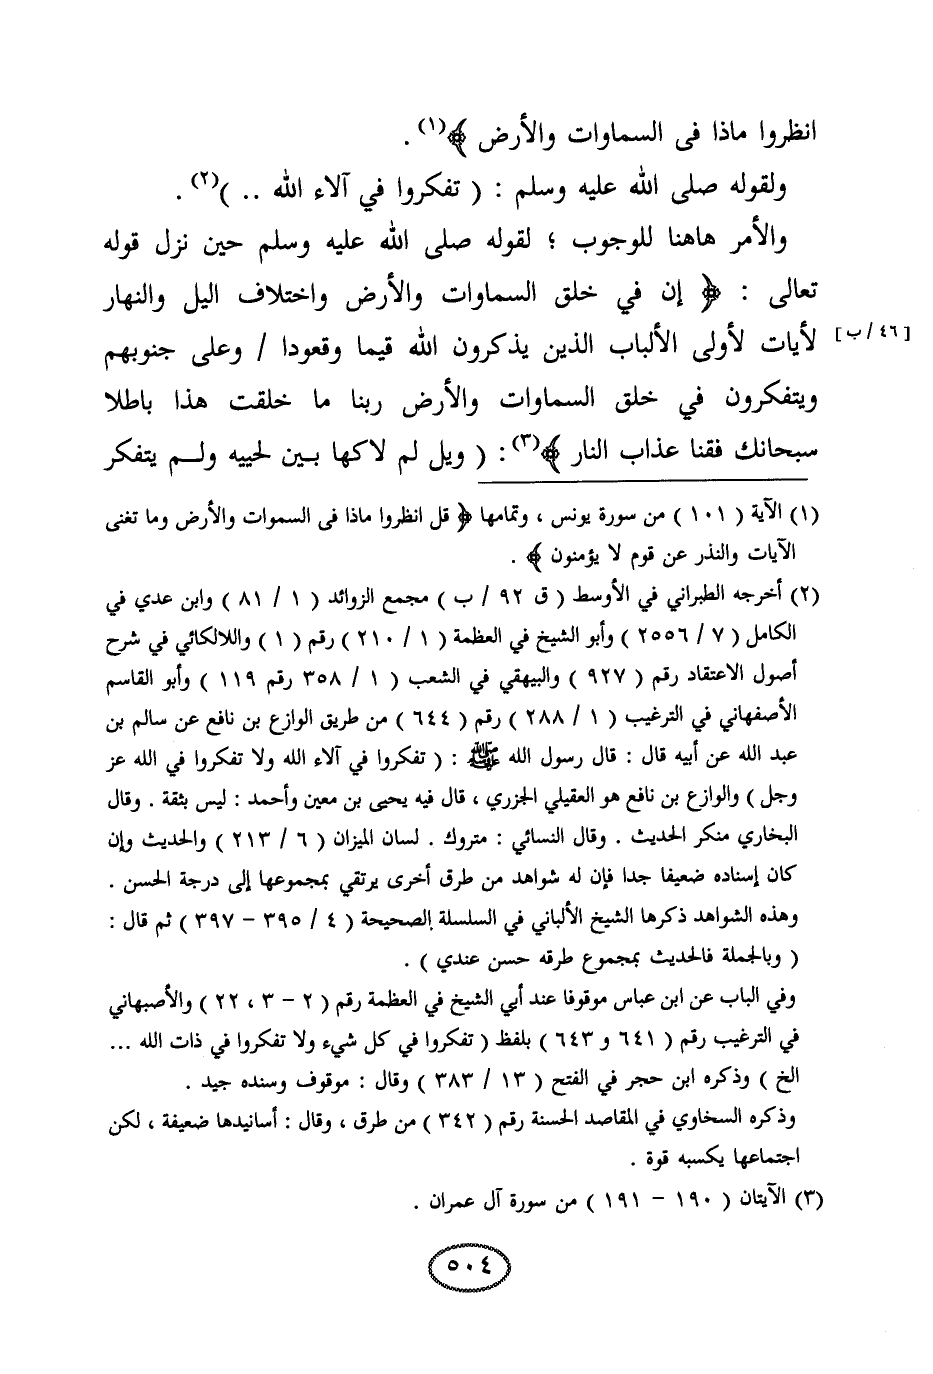 انظروا ماذا فى السماوات والأرض ﴾(١) .
ولقوله صلى الله عليه وسلم : ( تفكروا في آلاء الله .. )(٢) .
والأمر هاهنا للوجوب ؛ لقوله صلى الله عليه وسلم حين نزل قوله
تعالى : ﴿ إن في خلق السماوات والأرض واختلاف اليل والنهار
لأيات لأولى الألباب الذين يذكرون الله قيما وقعودا / وعلى جنوبهم
[ ٤٦ / ب ]
ويتفكرون في خلق السماوات والأرض ربنا ما خلقت هذا باطلا
سبحانك فقنا عذاب النار ﴾(٣) : ( ويل لم لاكها بين لحييه ولم يتفكر
(١) الآية ( ١٠١ ) من سورة يونس ، وتمامها ﴿ قل انظروا ماذا فى السموات والأرض وما تغنى
الآيات والنذر عن قوم لا يؤمنون ﴾ .
(٢) أخرجه الطبراني في الأوسط ( ق ٩٢ / ب ) مجمع الزوائد ( ١ / ٨١ ) وابن عدي في
الكامل ( ٧ / ٢٥٥٦ ) وأبو الشيخ في العظمة ( ١ / ٢١٠ ) رقم ( ١ ) واللالكائي في شرح
أصول الاعتقاد رقم ( ٩٢٧ ) والبيهقي في الشعب ( ١ / ٣٥٨ رقم ١١٩ ) وأبو القاسم
الأصفهاني في الترغيب ( ١ / ٢٨٨ ) رقم ( ٦٤٤ ) من طريق الوازع بن نافع عن سالم بن
عبد الله عن أبيه قال : قال رسول الله ﷺ : ( تفكروا في آلاء الله ولا تفكروا في الله عز
وجل ) والوازع بن نافع هو العقيلي الجزري ، قال فيه يحيى بن معين وأحمد : ليس بثقة . وقال
البخاري منكر الحديث . وقال النسائي : متروك . لسان الميزان ( ٦ / ٢١٣ ) والحديث وإن
كان إسناده ضعيفا جدا فإن له شواهد من طرق أخرى يرتقي بمجموعها إلى درجة الحسن .
وهذه الشواهد ذكرها الشيخ الألباني في السلسلة الصحيحة ( ٤ / ٣٩٥ – ٣٩٧ ) ثم قال :
( وبالجملة فالحديث بمجموع طرقه حسن عندي ) .
وفي الباب عن ابن عباس موقوفا عند أبي الشيخ في العظمة رقم ( ٢ – ٣ ، ٢٢ ) والأصبهاني
في الترغيب رقم ( ٦٤١ و ٦٤٣ ) بلفظ ( تفكروا في كل شيء ولا تفكروا في ذات الله ...
الخ ) وذكره ابن حجر في الفتح ( ١٣ / ٣٨٣ ) وقال : موقوف وسنده جيد .
وذكره السخاوي في المقاصد الحسنة رقم ( ٣٤٢ ) من طرق ، وقال : أسانيدها ضعيفة ، لكن
اجتماعها يكسبه قوة .
(٣) الآيتان ( ١٩٠ – ١٩١ ) من سورة آل عمران .
٥٠٤